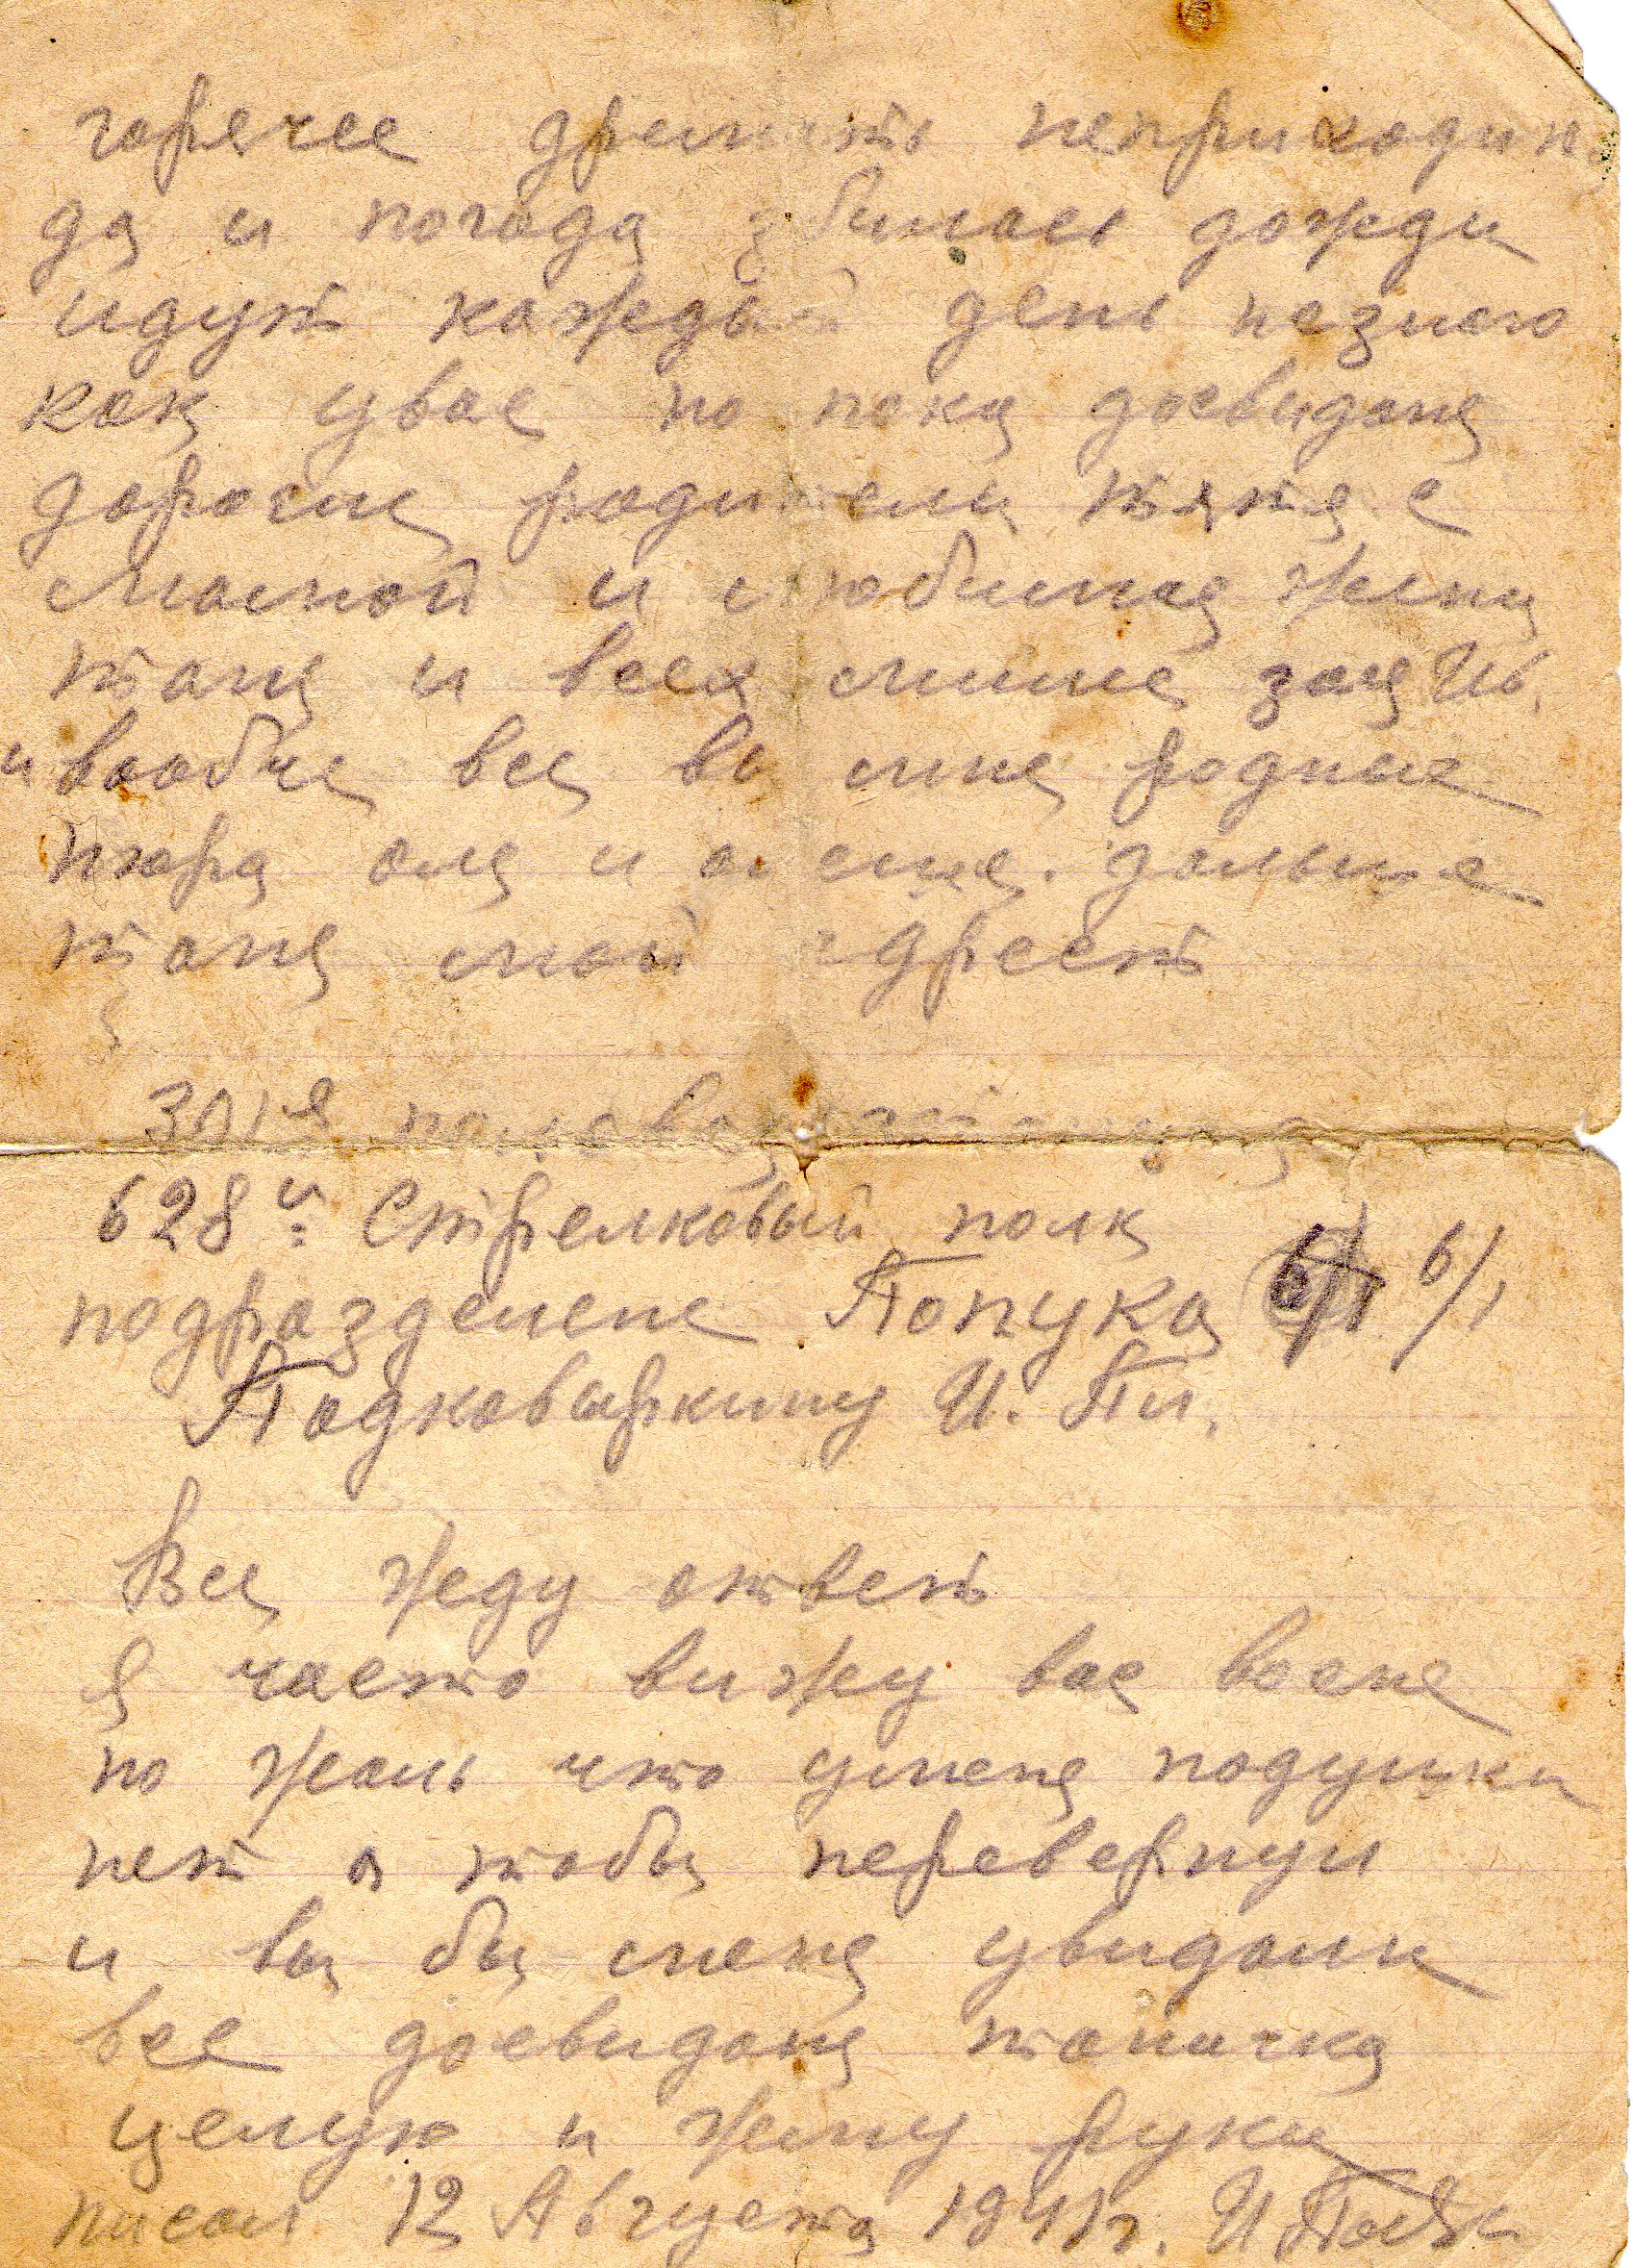 горячее дремать неприходит.
да и погода збилась дожди
идут каждый день незнаю
как увас но пока досвидания
дорогие родители тятя с
мамой и любимая жена
таня и всех милые зоя Ив.
и вообще все вы мне родные
шура оля и дальше
таня мой адрест
301я полевая
628й Стрелковый полк
подразделене Попука 6/1
Подковыркину И. Пи.
Все жду ответ
я часто вижу вас восне
но жаль что уменя подушки
нет а тобы перевернул
и вы бы меня увидали
все досвидания таничка
целую и жму руки
писал 12 Августа 1941г. И Подк